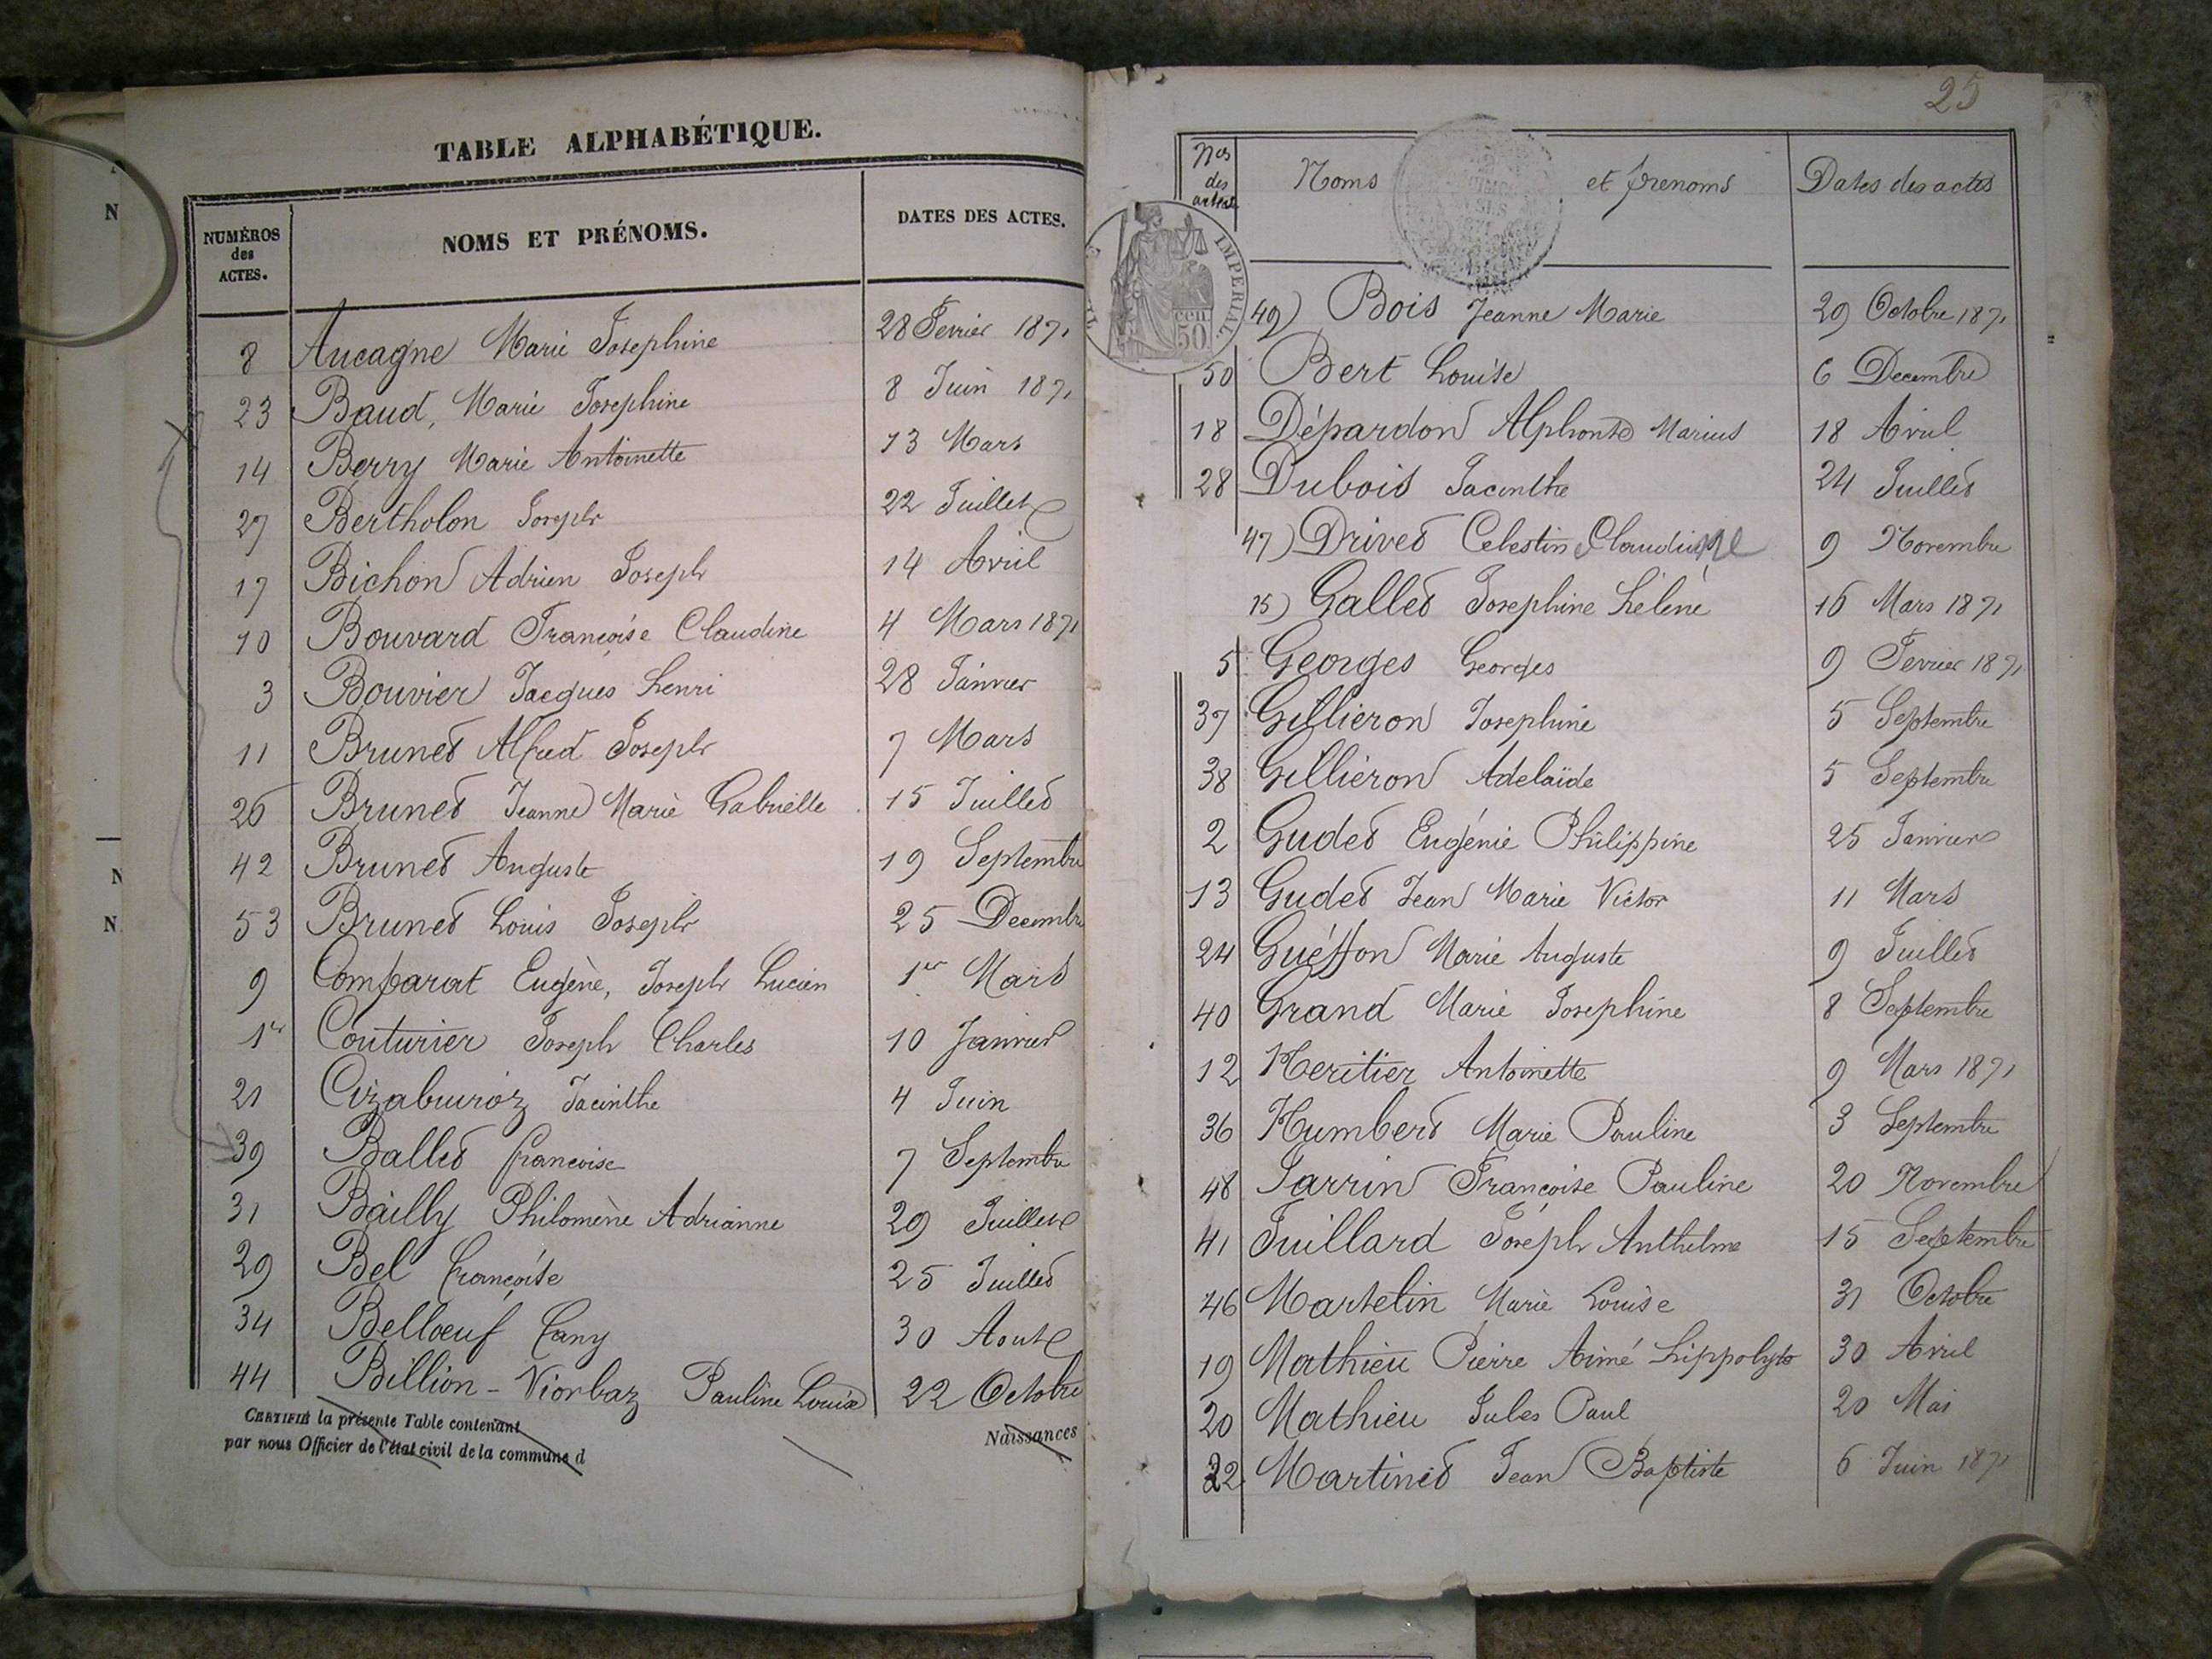 TABLE ALPHABÉTIQUE.
NUMÉROS des ACTES.
NOMS ET PRÉNOMS.
DATES DES ACTES.
8 Aucagne Marie Josephine 28 Fevrier 1871
23 Baud, Marie Josephine 8 Juin 1871
14 Berry Marie Antoinette 13 Mars
27 Bertholon Joseph 22 Juillet
17 Bichon Adrien Joseph 14 Avril
10 Bouvard Françoise Claudine 4 Mars 1871
3 Bouvier Jacques henri 28 Janvier
11 Brunet Alfred Joseph 7 Mars
26 Brunet Jeanne Marie Gabrielle 15 Juillet
42 Brunet Auguste 19 Septembre
53 Brunet Louis Joseph 25 Decembre
9 Comparat Eugène, Joseph Lucien 1er Mars
1er Couturier Joseph Charles 10 Janvier
21 Cizaburoiz Jacinthe 4 Juin
39 Ballet françoise 7 Septembre
31 Bailly Philomène Adrianne 29 Juillet
29 Bel françoise 25 Juillet
34 Bellœuf fany 30 Aout
44 Billion - Viorbaz Pauline Louise 22 Octobre
CERTIFIÉ la présente Table contenant Naissances
par nous Officier de l'état civil de la commune d
25
Nos des actes
Noms et prenoms
Dates des actes
IMPERIAL.
50 cen
49) Bois Jeanne Marie 29 Octobre 1871
50 Bert Louise 6 Decembre
18 Dépardon Alphonse Marius 18 Avril
28 Dubois Jacinthe 24 Juillet
47) Drivet Celestine Claudine 9 Novembre
15) Gallet Josephine hélène 16 Mars 1871
5 Georges Georges 9 Fevrier 1871
37 Gilliéron Josephine 5 Septembre
38 Gilliéron Adelaïde 5 Septembre
2 Gudet Eugénie Philippine 25 Janvier
13 Gudet Jean Marie Victor 11 Mars
24 Guéffon Marie Auguste 9 Juillet
40 Grand Marie Josephine 8 Septembre
12 Heritier Antoinette 9 Mars 1871
36 Humbert Marie Pauline 3 Septembre
48 Jarrin Françoise Pauline 20 Novembre
41 Juillard Joseph Anthelme 15 Septembre
46 Martelin Marie Louise 31 Octobre
19 Mathieu Pierre Aimé hippolyte 30 Avril
20 Mathieu Jules Paul 20 Mai
22 Martinet Jean Baptiste 6 Juin 1871